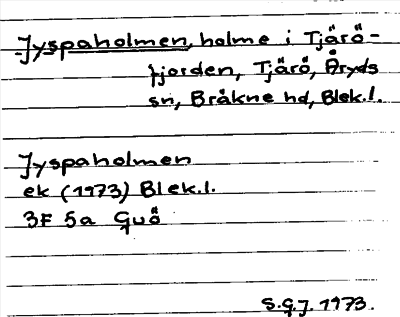 Jyspaholmen, holme i Tjärö-
fjorden, Tjärö, Åryds
sn, Bräkne hd, Blek.l.
Jyspaholmen
ek (1973) Blek.l.
3F 5a Guö
S.G.J. 1973.